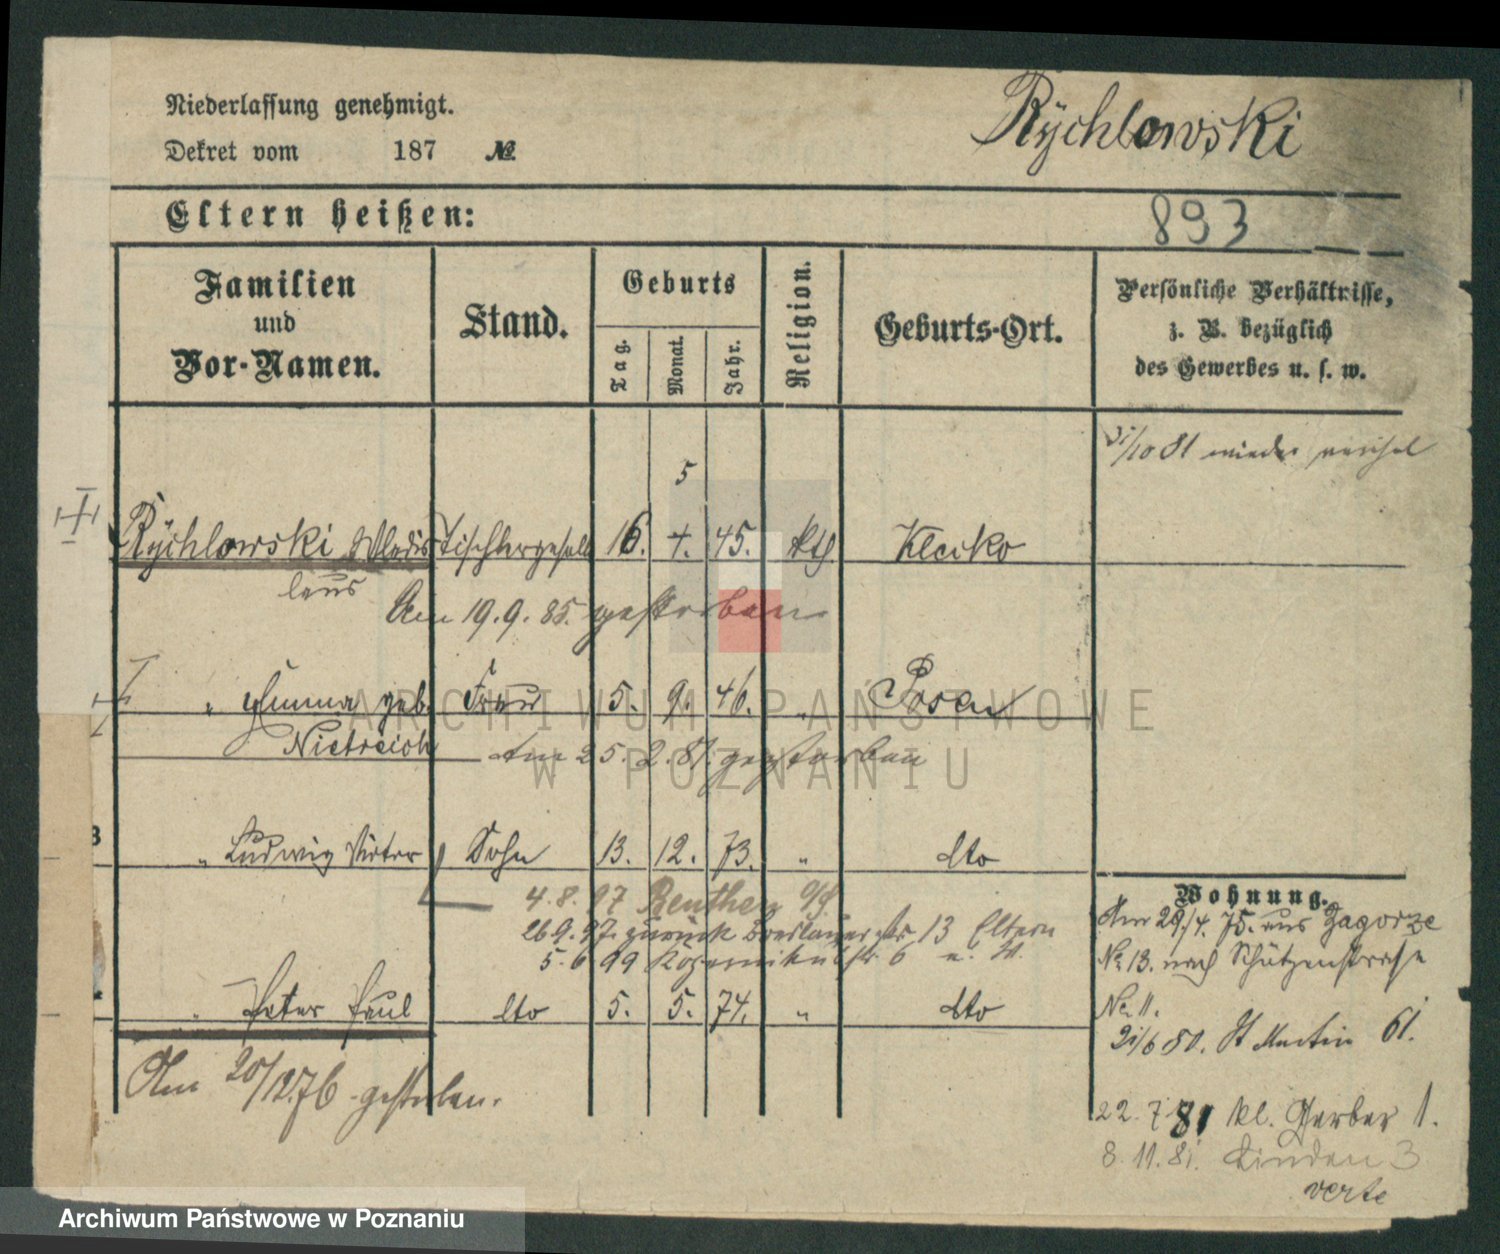 Niederlassung genehmigt.
Dekret vom 187 №
Rychlowski
Eltern heißen:
893
Familien und Vor-Namen.
Stand.
Geburts
Tag.
Monat.
Jahr.
Religion.
Geburts-Ort.
Persönliche Verhältnisse,
z. B. bezüglich
des Gewerbes u. s. w.
/10 81 wieder
5
Rychlowski Wladis Tischlergesell 16. 4. 45. kth. Klecko
laus
Am 19.9.85. gestorben
" Emma geb. Frau 5. 9. 46. " Posen
Nietreich
Am 25.2.81. gestorben
" Ludwig Victor Sohn 13. 12. 73. " dto
4.8.97 Beuthen O/S
26.9.97. zurück Breslauerstr 13 Eltern
5.6 99 6
" Peter Paul dto 5. 5. 74. " dto
Am 20/12.76 gestorben.
Wohnung.
Am 29./4. 75. aus Zagorze
№ 13. nach Schützenstrasse
№ 11.
21/6 80. St Martin 61.
22. 7 81 kl. Gerber 1.
8. 11. 81. Linden 3
verte
ARCHIWUM PAŃSTWOWE
W POZNANIU
Archiwum Państwowe w Poznaniu